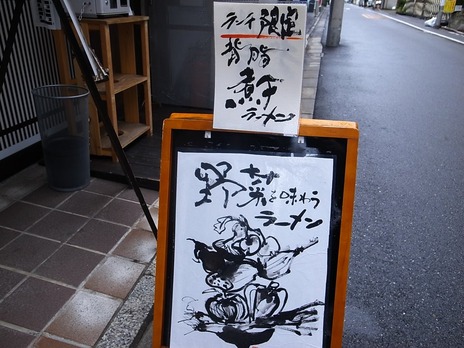 ランチ限定
背脂
煮干
ラーメン
野菜を味わう
ラーメン